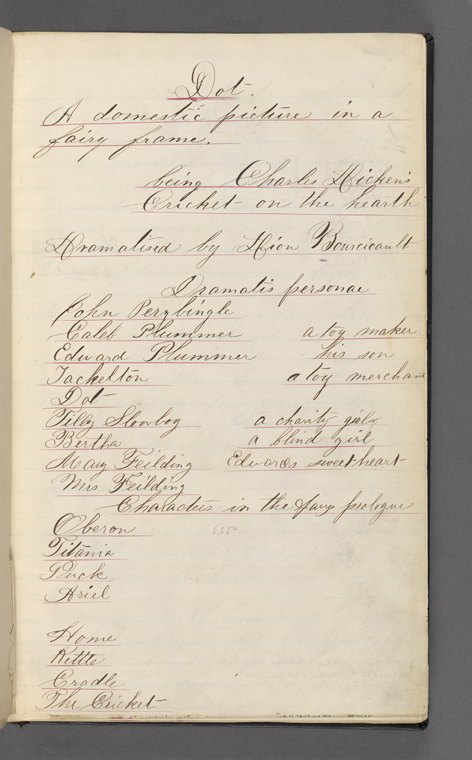 Dot.
A domestic picture in a
fairy frame.
being Charles Dickens
Cricket on the hearth
Dramatised by Dion Bourcicault
Dramatis personae
John Perybingle
Caleb Plummer a toy maker
Edward Plummer his son
Tackelton a toy merchant
Dot
Tilly Slowboy a charity girl
Bertha a blind girl
May Feilding Edwards sweetheart
Mrs Feilding
Characters in the fairy prologue
Oberon
Titania
Puck
Ariel
Home
Kettle
Cradle
The Cricket